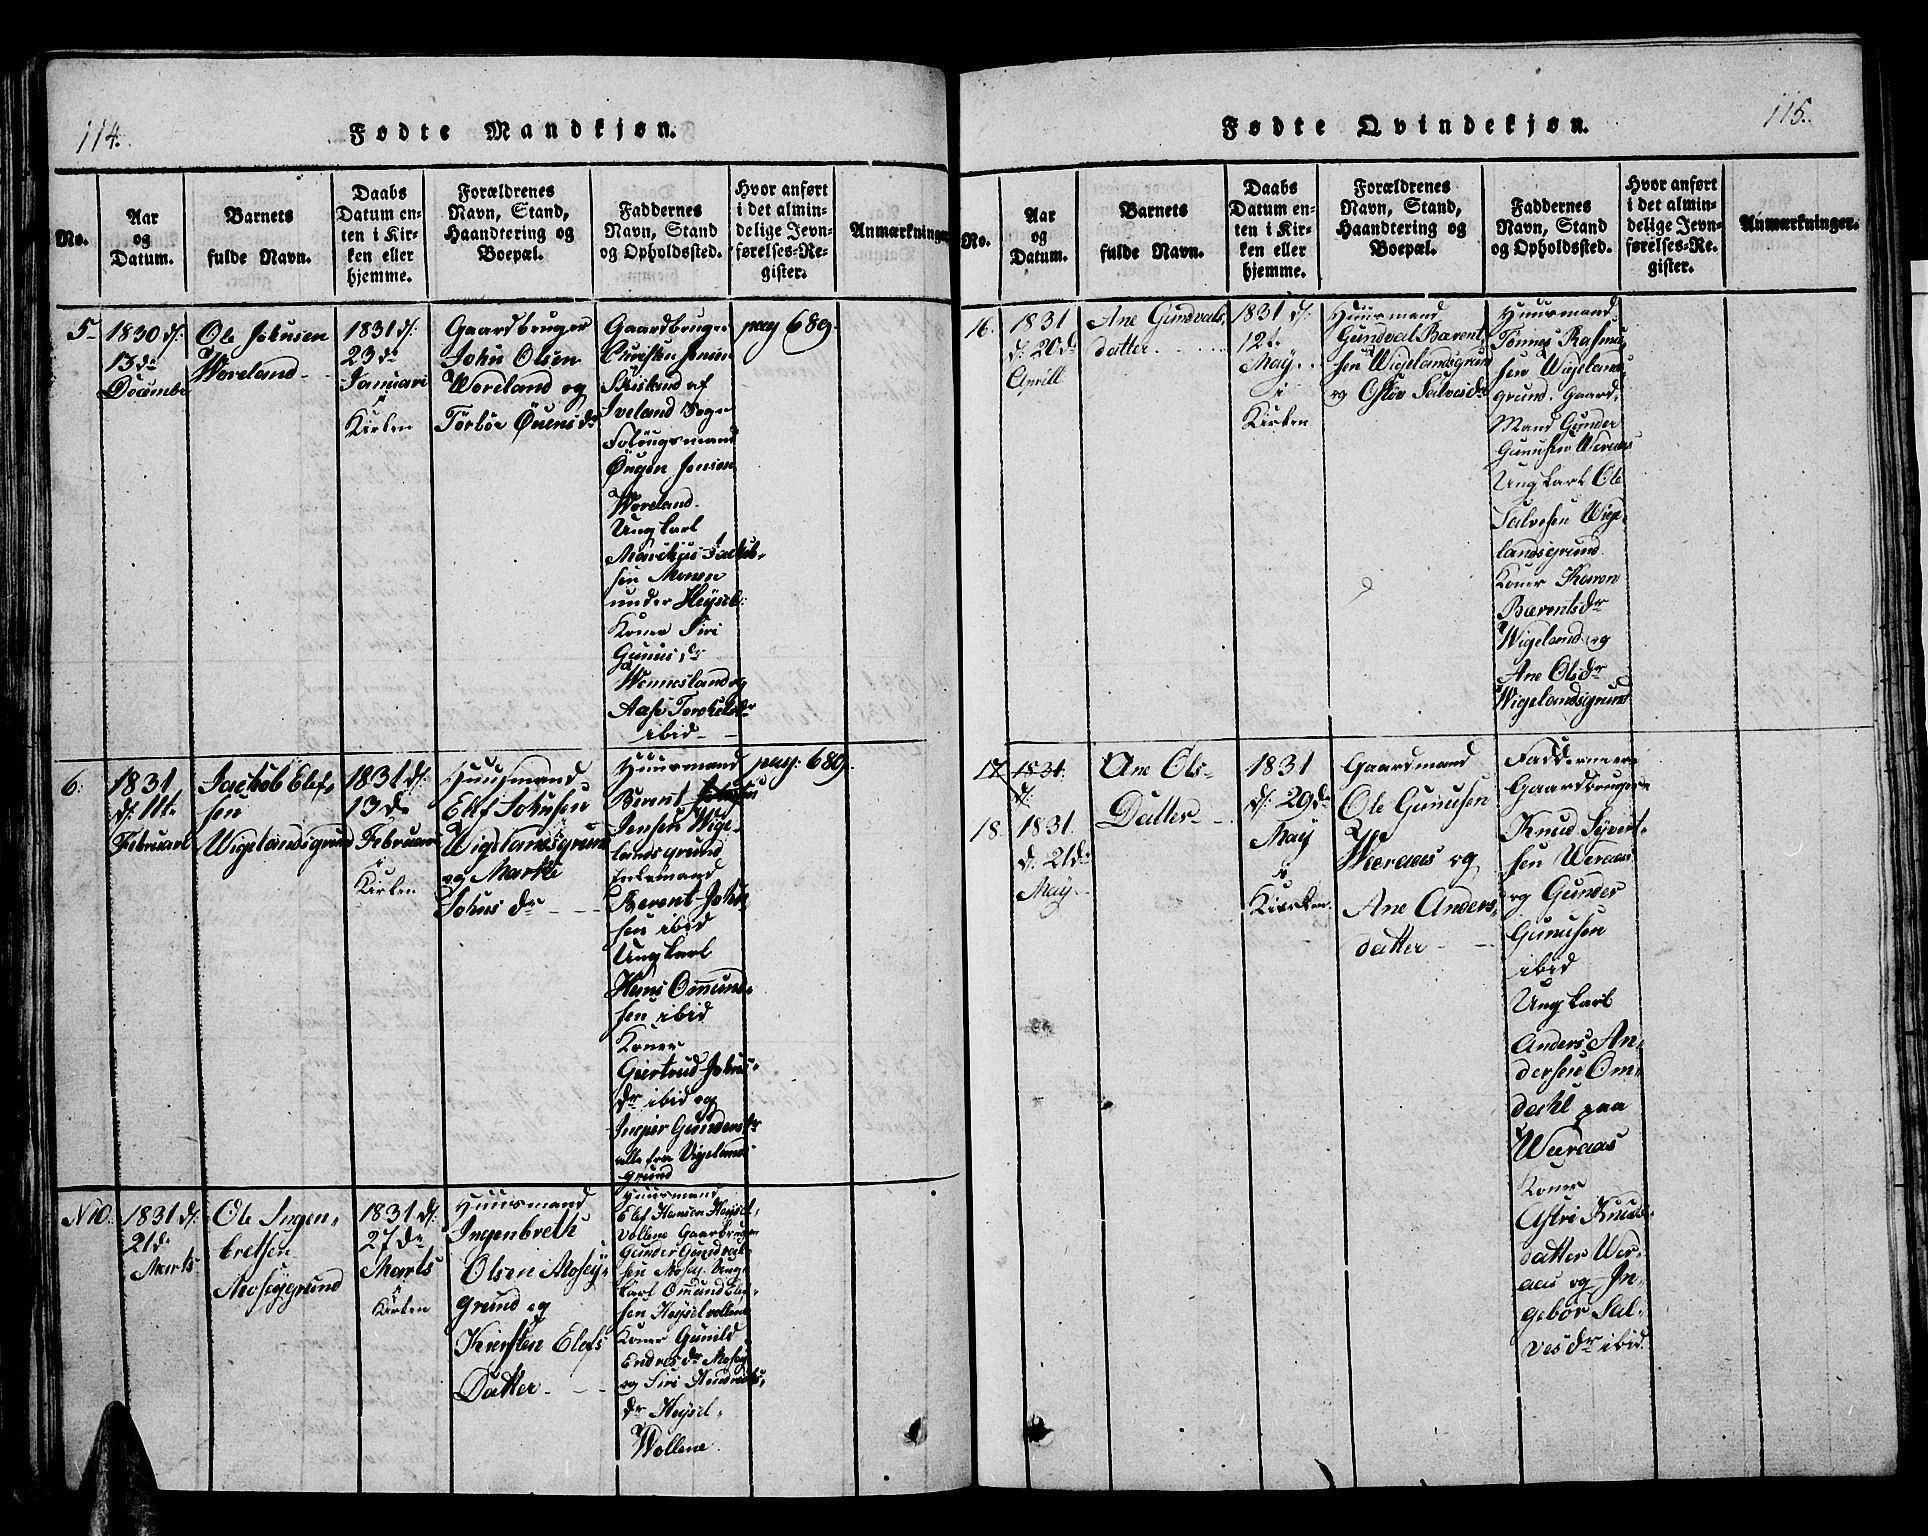 114.
Fødte Mandkjøn.
No.
Aar
og
Datum.
Barnets
fulde Navn.
Daabs
Datum en-
ten i Kir-
ken eller
hjemme.
Forældrenes
Navn, Stand,
Haandtering og
Boepæl.
Faddernes
Navn, Stand
og Opholdssted.
Hvor anført
i det almin-
delige Jevn-
førelses-Re-
gister.
Anmærkninger
5
1830 d:
13de
Decembr
Ole Johnsen
Woreland
1831 d:
23de
Januari
i
Kirken
Gaardbruger
John Olsen
Woreland og
Torbor Øuensdr
Gaardbruger
Christen Jensen
Skisland af
Iveland Sogn
Følougsmand
Øugen Jensen
Woreland.
Ungkarl
Marchus Jackob-
sen Monen
under Heysel:
Koner Siri
Gunusdr
Wennesland og
Aase Torckelsdr
ibid
pag 689.
6.
1831
d: 11te
Februari
Jackob Elef-
sen
Wigelandsgrund
1831 d:
13de
Februari
i
Kirken
Huusmand
Elef Johnsen
Wigelandsgrund
og Marte
Johns dr
Huusmand
Berent
Jensen Wige-
landsgrund
Enkemand
Berent John-
sen ibid
Ungkarl
Hans Omund-
sen ibid
Koner
Giertrud Johns-
dr ibid og
Inger Gundersdr
alle fra Vigelands
grund
pag: 689.
N 10.
1831 d:
21de
Marts
Ole Ingen-
bretsen
Moseygrund
1831 d:
27de
Marts
i
Kirken
Huusmand
Ingenbreth
Olsen Mosey-
grund og
Kiersten Elefs
Datter
Huusmand
Elef Hansen Heysel-
vollene Gaarbruger
Gunder Gundval-
sen Mosey. Ung-
karl Omund Elef-
sen Heyselvollene
Koner Gunild
Endresdr Mosey
og Siri Hendrichs-
dr Heysel-
Wollene.
115.
Fødte Qvindekjøn.
No.
Aar
og
Datum.
Barnets
fulde Navn.
Daabs
Datum en-
ten i Kir-
ken eller
hjemme.
Forældrenes
Navn, Stand,
Haandtering og
Boepæl.
Faddernes
Navn, Stand
og Opholdssted.
Hvor anført
i det almin-
delige Jevn-
førelses-Re-
gister.
Anmærkninger.
16.
1831
d: 20de
Aprill
Ane Gundvals,
datter
1831 d:
12te
May
i
Kirken
Huusmand
Gundval Bærent,
sen Wigelandsgrund
og Osløv Salvesdr
Huusmand
Tønnes Rasmu-
sen Wigelands
grund. Gaard,
Mand Gunder
Gunusen Weraas
Ungkarl Ole
Salvesen Wige-
landsgrund.
Koner Karen
Bærentsdr
Wigeland og
Ane Olsdr
Wigelandsgrund
17
1831.
d:
18.
1831.
d: 21de
May
Ane Ols-
Datter
1831
d: 29de
May
i
Kircken
Gaardmand
Ole Gunusen
Weraas og
Ane Anders,
datter
Faddernere
Gaardbrugere
Knud Syvert-
sen Weraas
og Gunder
Gunusen
ibid
Ungkarl
Anders An-
dersen Om-
dahl paa
Weraas
Koner
Astri Knuds-
datter Wer-
aas og In-
gebor Sal-
vesdr ibid.